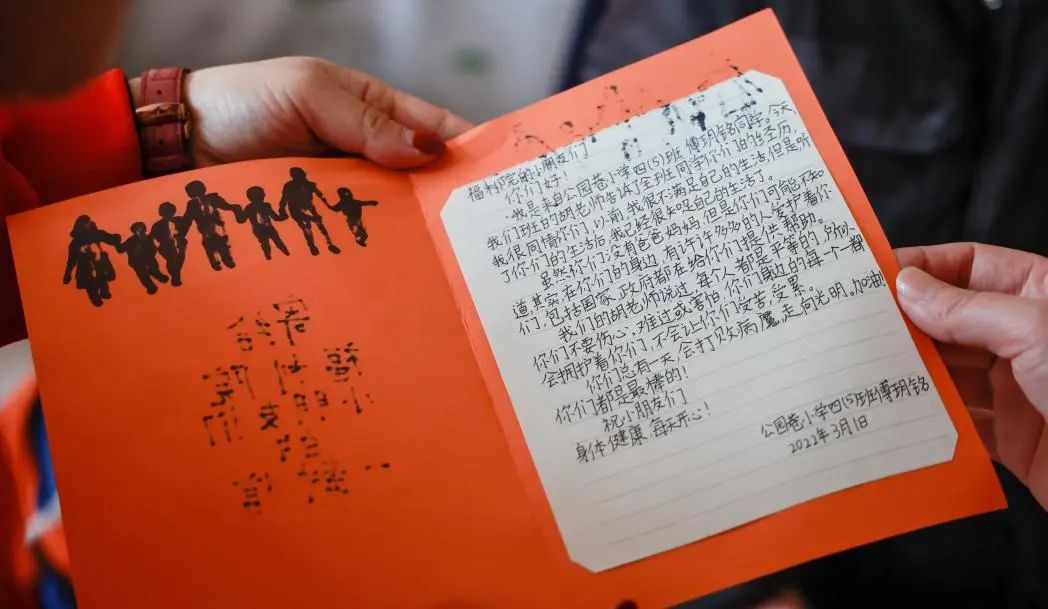 福利院的小朋友们
你们好!
我是来自公园巷小学四(5)班 傅玥铭同学。今天,
我们班的胡老师告诉了全班同学你们的生经历,
我很同情你们,以前,我很不满足自己的生活,但是听
了你们的生活后,我已经很知足自己的生活了。
虽然你们没有爸爸妈妈,但是你们可能不知
道,其实,在你们的身边,有许许多多的人爱护着你
们,包括国家,政府都在给你们提供帮助。
我们的胡老师说过,每个人都是平等的,所以,
你们不要伤心,难过或害怕,你们身边的每一个都
会拥护着你们,不会让你们受苦,受累。
你们总有一天,会打败病魔,走向光明。加油!
你们都是最棒的!
祝小朋友们
身体健康,每天开心!
公园巷小学四(5)班傅玥铭
2022年3月1日